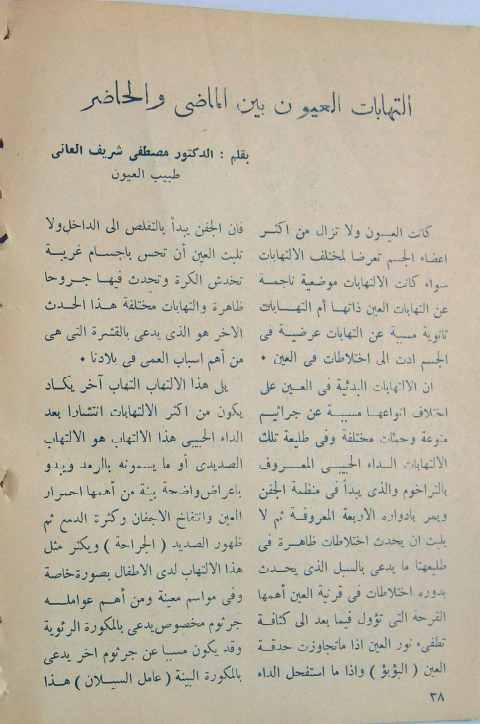 التهابات العيون بين الماضى والحاضر
بقلم : الدكتور مصطفى شريف العانى
طبيب العيون
كانت العيون ولا تزال من اكثر
اعضاء الجسم تعرضا لمختلف الالتهابات
سواء كانت الالتهابات موضعية ناجمة
عن التهابات العين ذاتها أم التهابات
ثانوية مسببة عن التهابات عرضية فى
الجسم ادت الى اختلاطات فى العين ٠
ان الالتهابات البدئية فى العين على
اختلاف انواعها مسببة عن جراثيم
منوعة وحمات مختلفة وفى طليعة تلك
الالتهابات الداء الحبيبى المعروف
بالتراخوم والذى يبدأ فى منظمة الجفن
ويمر بادواره الاربعة المعروفة ثم لا
يلبث ان يحدث اختلاطات ظاهرة فى
طليعتها ما يدعى بالسبل الذى يحدث
بدوره اختلاطات فى قرنية العين أهمها
القرحة التى تؤول فيما بعد الى كثافة
تطفىء نور العين اذا ماتجاوزت حدقة
العين ( البؤبؤ ) واذا ما استفحل الداء
فان الجفن يبدأ بالتقلص الى الداخل ولا
تلبث العين أن تحس باجسام غريبة
تخدش الكرة وتحدث فيها جروحا
ظاهرة والتهابات مختلفة هذا الحدث
الاخر هو الذى يدعى بالقشرة التى هى
من أهم اسباب العمى فى بلادنا ٠
يلى هذا الالتهاب التهاب آخر يكاد
يكون من اكثر الالتهابات انتشارا بعد
الداء الحبيبى هذا الالتهاب هو الالتهاب
الصديدى أو ما يسمونه بالرمد ويبدو
باعراض واضحة بينة من أهمها احمرار
العين وانتفاخ الاجفان وكثرة الدمع ثم
ظهور الصديد ( الجراحة ) ويكثر مثل
هذا الالتهاب لدى الاطفال بصورة خاصة
وفى مواسم معينة ومن أهم عوامله
جرثوم مخصوص يدعى بالمكورة الرئوية
وقد يكون مسببا عن جرثوم اخر يدعى
بالمكورة البنية ( عامل السيلان ) هذا
٣٨